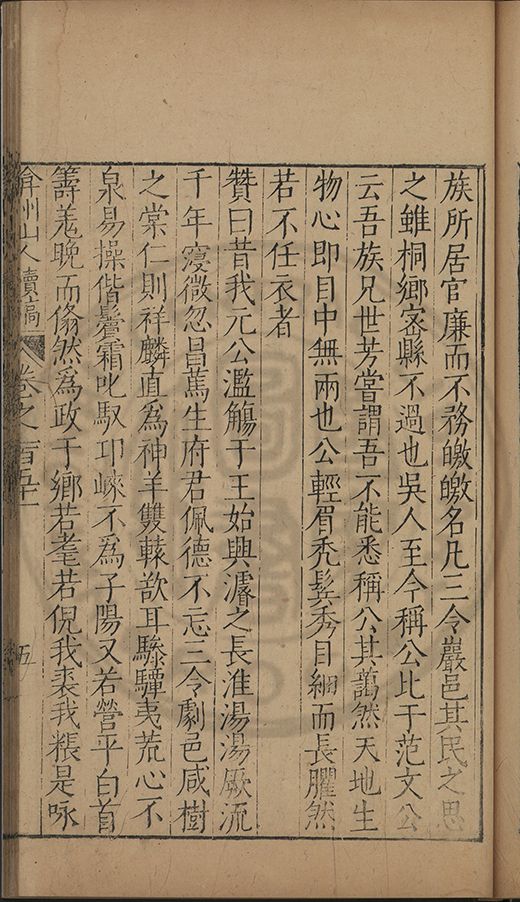 族所居官廉而不務皦皦名凡三令巖邑其民之思
之雖桐鄉密縣不過也吳人至今稱公比于范文公
云吾族兄世芳嘗謂吾不能悉稱公其藹然天地生
物心即目中無兩也公輕眉禿鬂秀目細而長臞然
若不任衣者
贊曰昔我元公濫觴于王始興濬之長淮湯湯厥流
千年寖微忽昌篤生府君佩德不忘三令劇邑咸樹
之棠仁則祥麟直為神羊雙轅欲耳驂驔夷荒心不
泉易操偕鬢霜叱馭卭崍不為子陽又若營平白首
籌羗晚而翛然爲政于鄉若耄若倪我裘我粻是咏
弇州山人續稿 卷之一百五十一 五